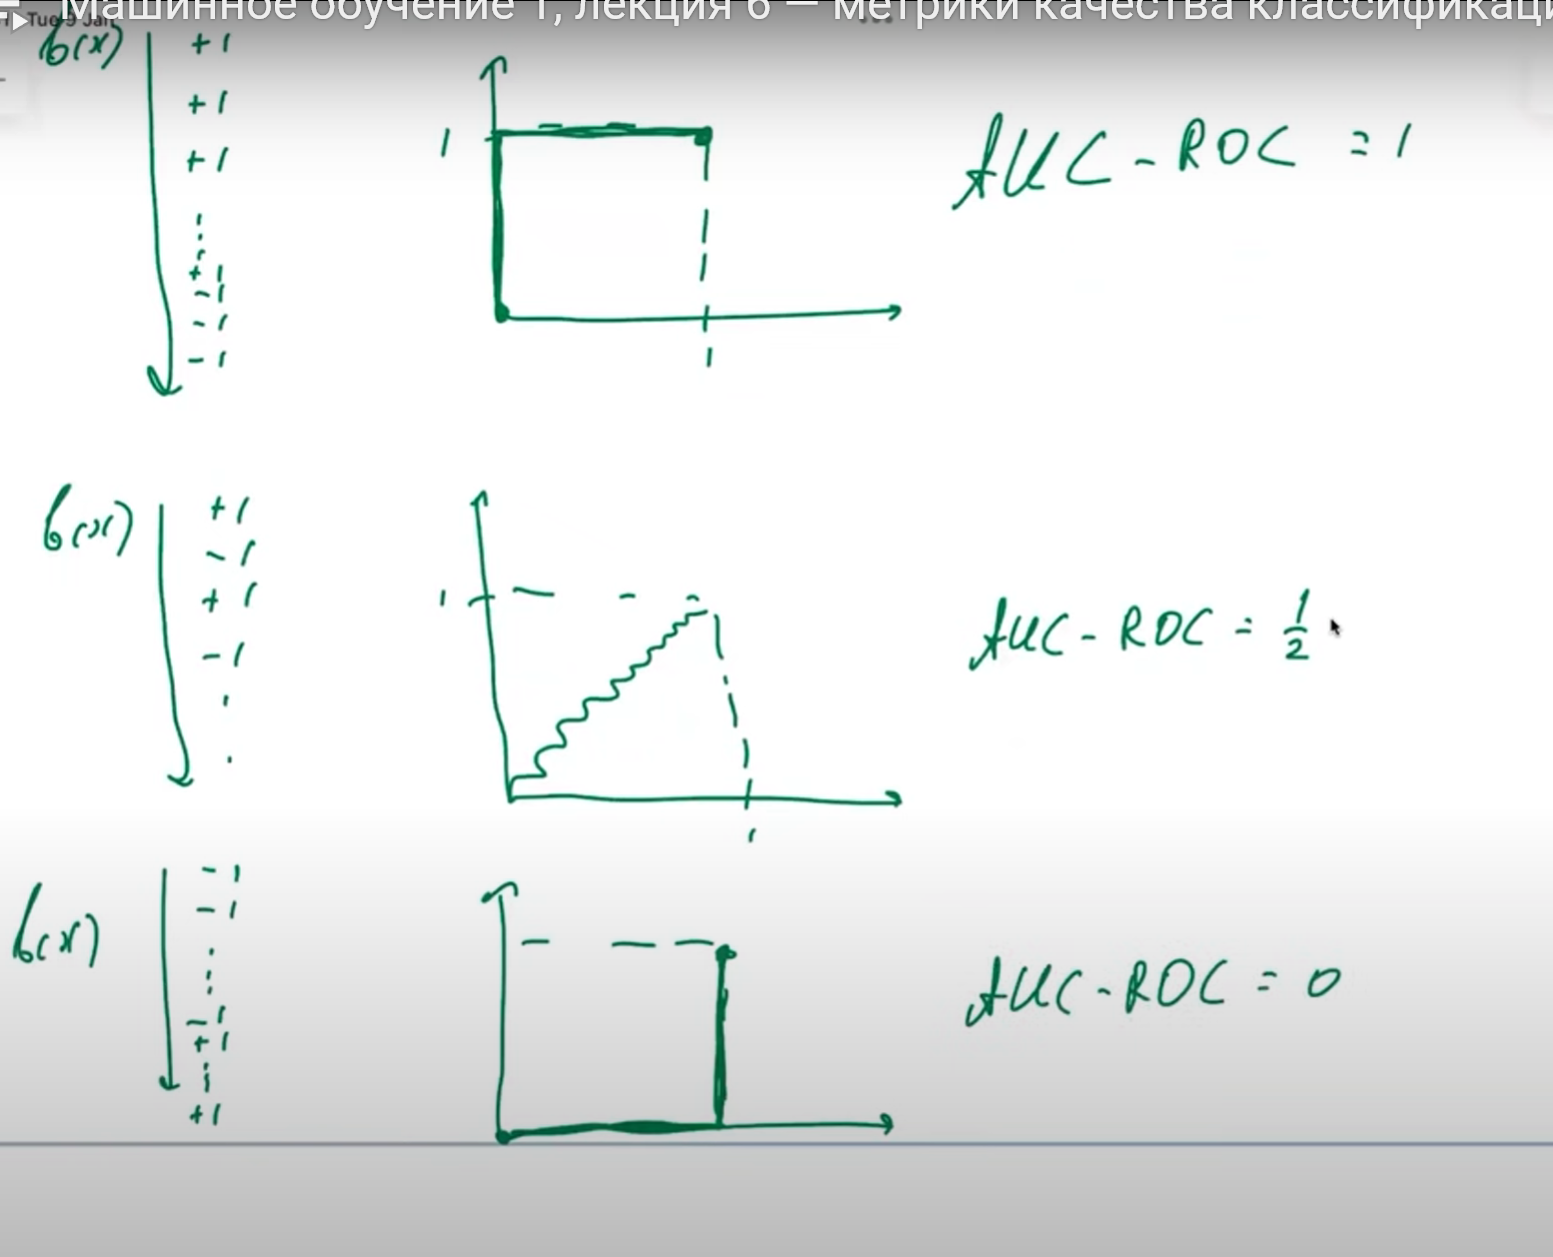 Tue 9 Jan
Машинное обучение 1, лекция 6 — метрики качества классификаци
b(x)
+1
+1
+1
+1
-1
-1
-1
1
1
AUC-ROC = 1
b(x)
+1
-1
+1
-1
1
1
AUC-ROC = 1/2
b(x)
-1
-1
-1
+1
+1
AUC-ROC = 0